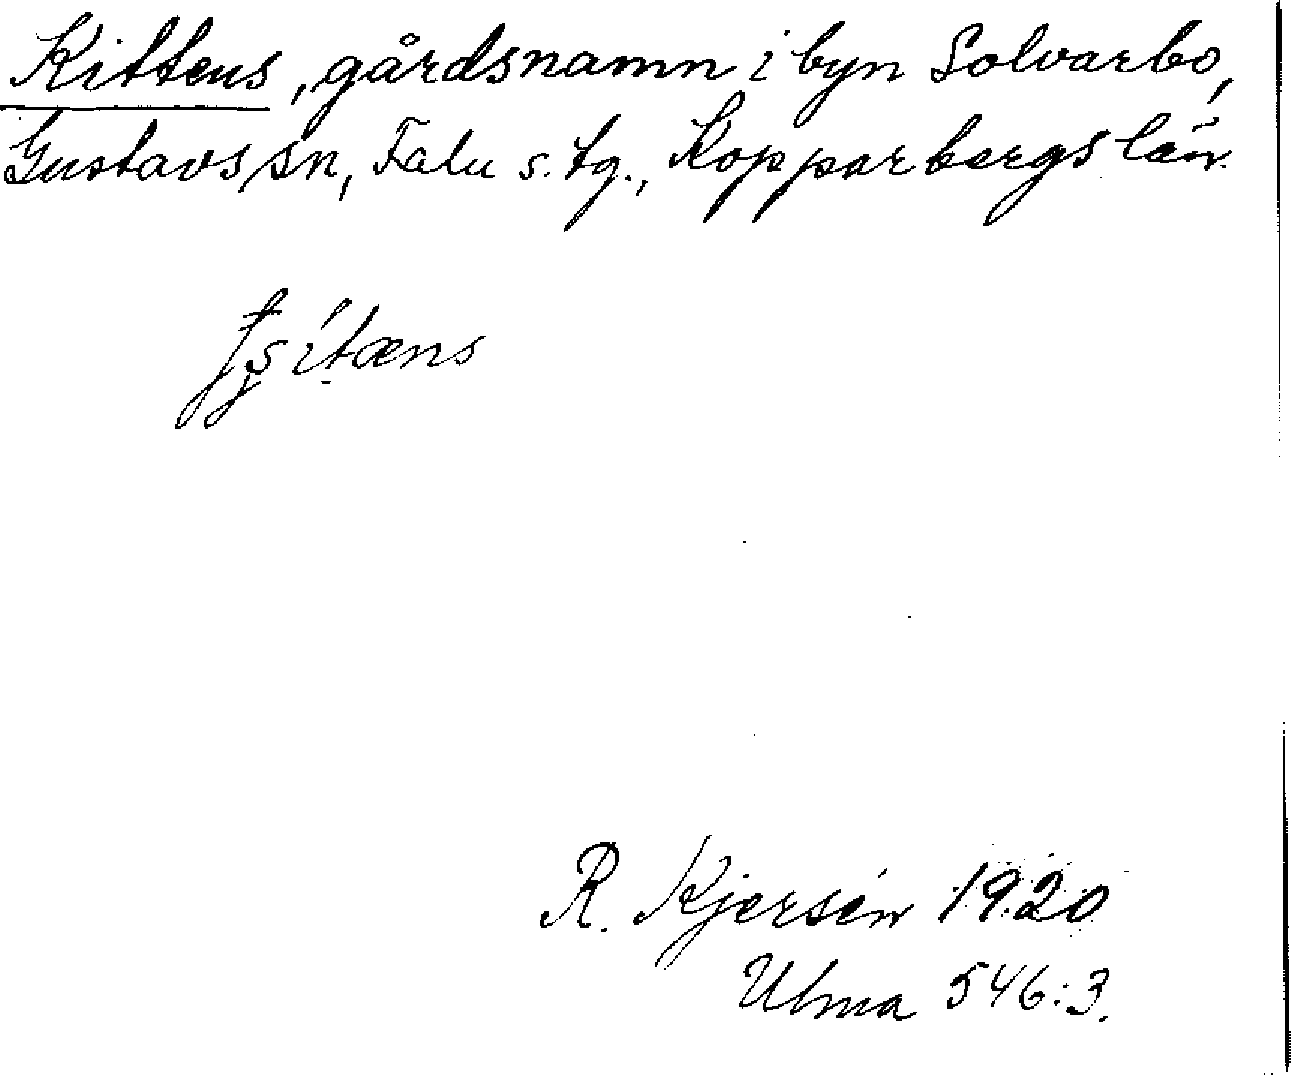 Kittens, gårdsnamn i byn Solvarbo,
Gustavs sn, Falu s. tg., Kopparbergs län.
R. Kjersén 1920
Ulma 546:3.